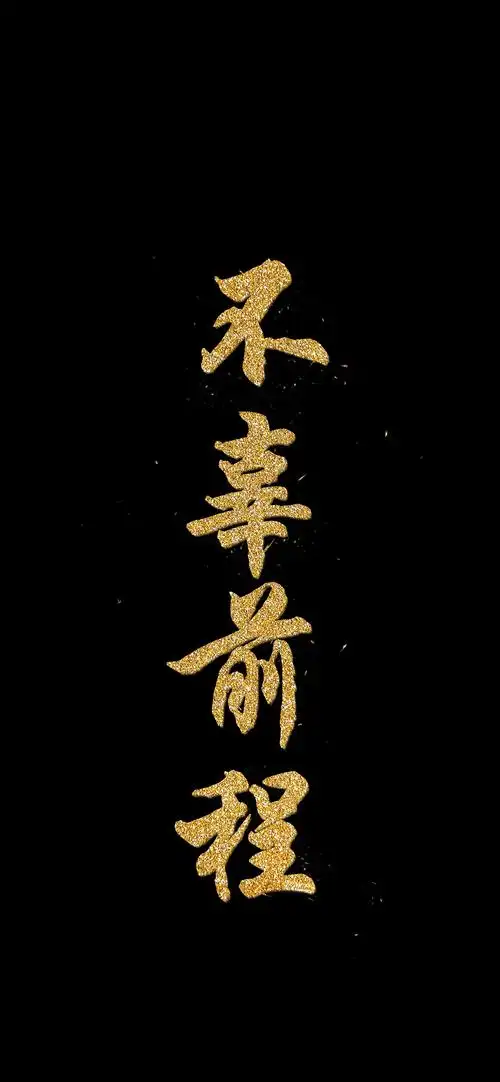 不
辜
前
程